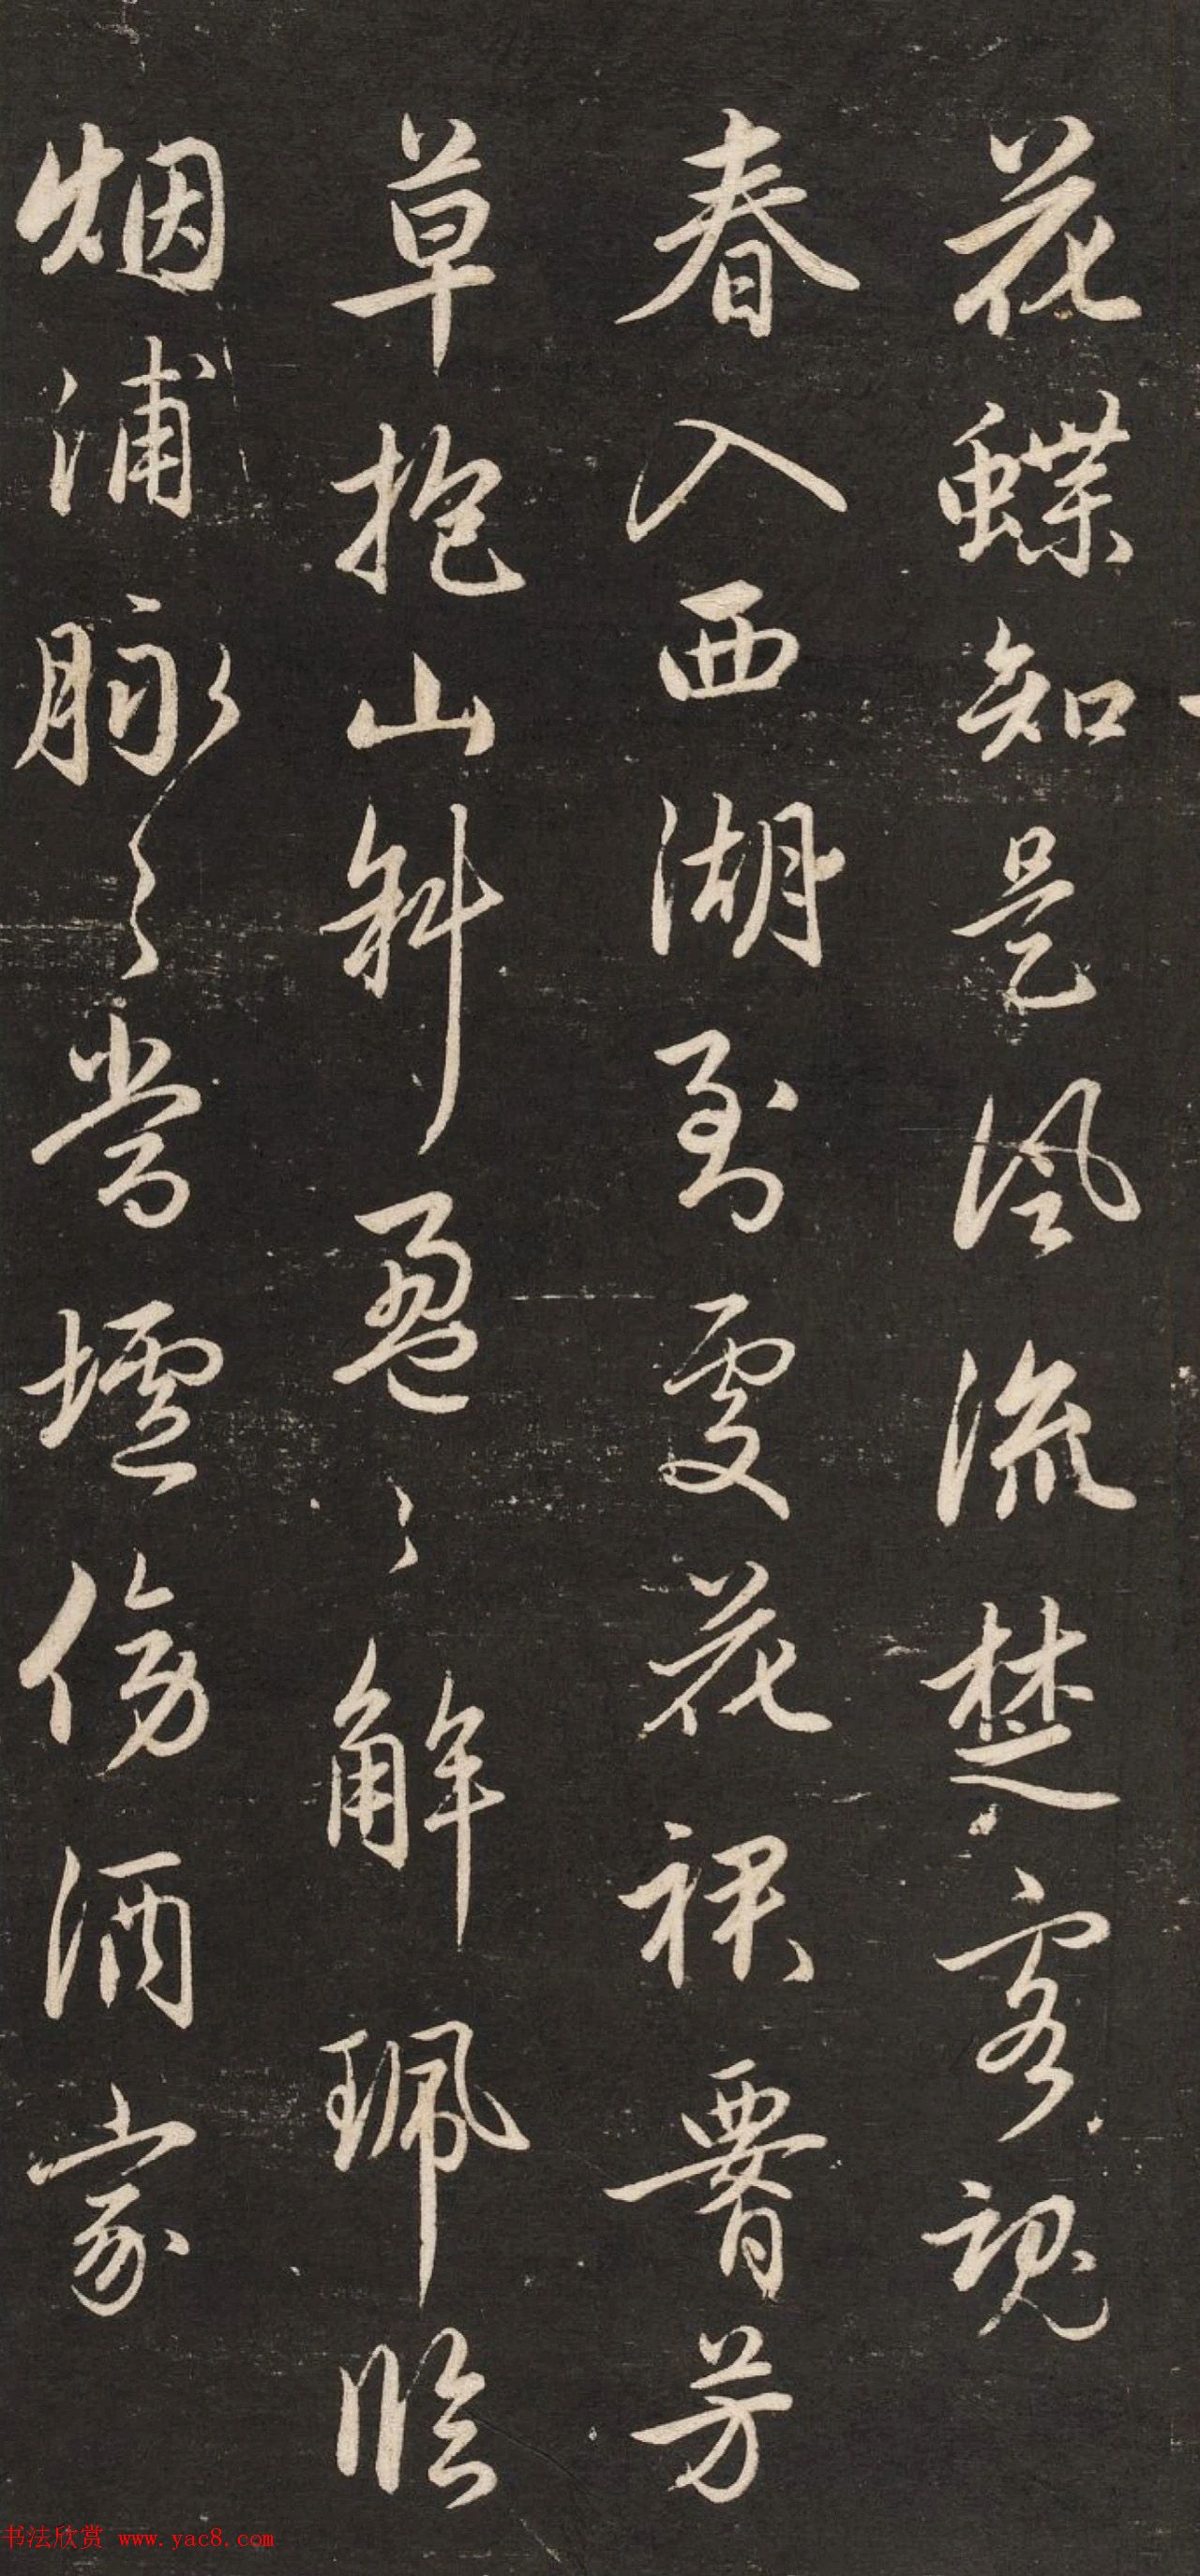 花蝶知是风流楚客魂
春入西湖到处花裙腰芳
草抱山斜盈〻解珮临
烟浦脉〻当垆傍酒家
书法欣赏 www.yac8.com